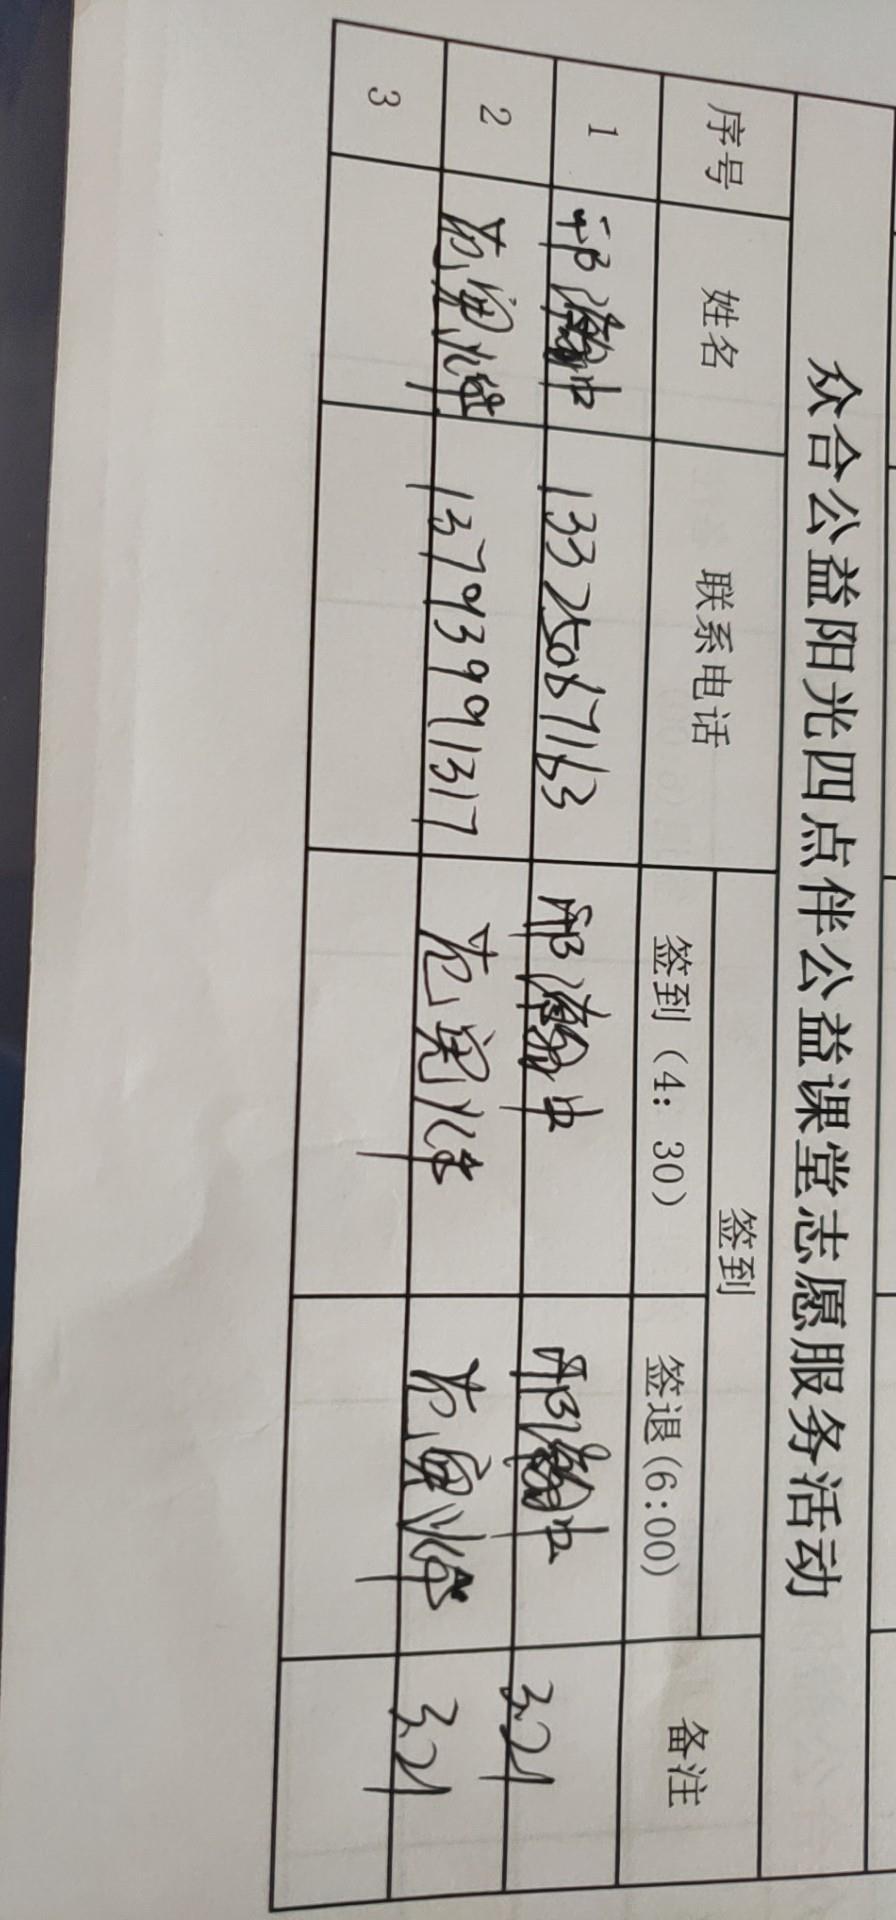 众合公益阳光四点伴公益课堂志愿服务活动
序号 姓名 联系电话 签到 备注
签到（4：30） 签退(6:00)
1 瀚中 13325067163 瀚中 瀚中 3.21
2 范 13793991317 范 范 3.21
3